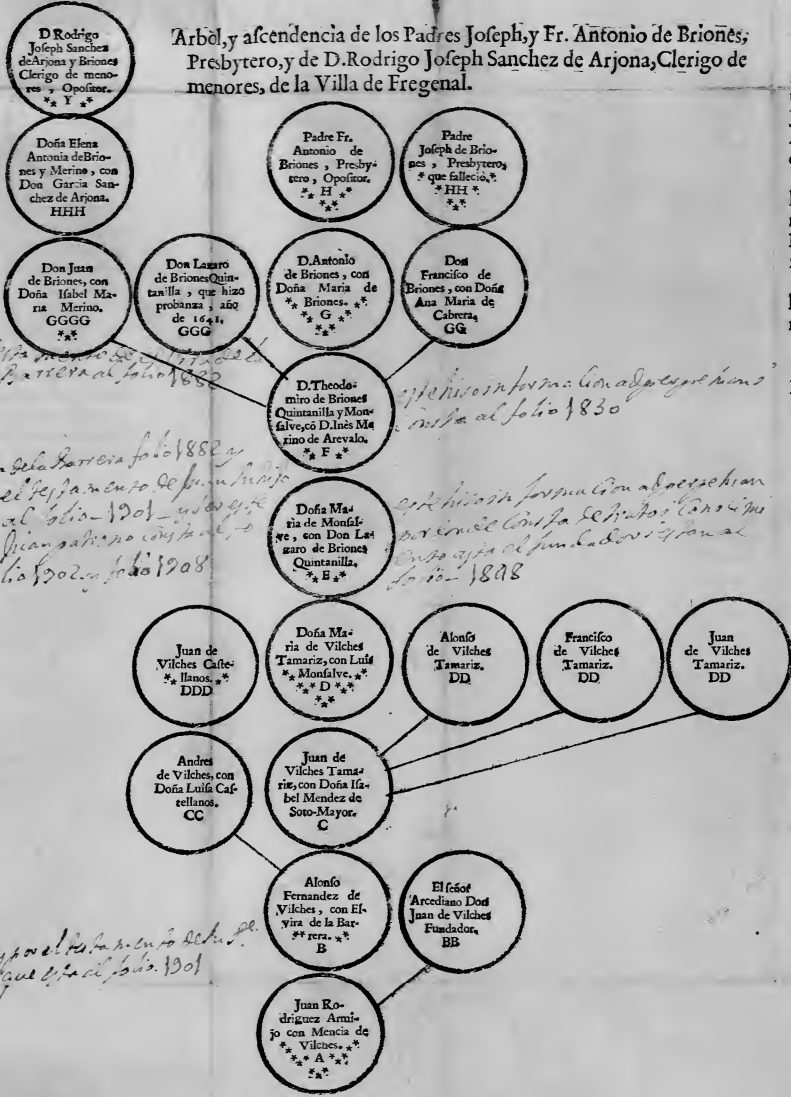 Arbol, y aſcendencia de los Padres Joſeph, y Fr. Antonio de Briones,
Presbytero, y de D. Rodrigo Joſeph Sanchez de Arjona, Clerigo de
menores, de la Villa de Fregenal.
D Rodrigo
Joſeph Sanchez
de Arjona y Briones
Clerigo de meno-
res , Opoſitor.
*** Y ***
Doña Elena
Antonia de Brio-
nes y Merino, con
Don Garcia San-
chez de Arjona.
HHH
Padre Fr.
Antonio de
Briones , Presby-
tero , Opoſitor.
* H *
***
Padre
Joſeph de Brio-
nes , Presbytero,
* que falleciò. *
* HH *
***
Don Juan
de Briones, con
Doña Iſabel Ma-
ria Merino.
GGGG
***
Don Lazaro
de Briones Quin-
tanilla , que hizo
probanza , año
de 1641.
GGG
D. Antonio
de Briones , con
Doña Maria de
*** Briones. ***
* G *
***
Don
Franciſco de
Briones , con Doña
Ana Maria de
Cabrera,
GG
D. Theodo-
miro de Briones
Quintanilla y Mon-
ſalve, cõ D. Inès Me
rino de Arevalo.
*** F ***
Barrera al folio 1882
este hiso informacion
Consta al folio 1830
Doña Ma-
ria de Monſal-
ve , con Don La-
zaro de Briones
Quintanilla.
*** E ***
de la Barrera folio 1882 y
el testamento de
al folio - 1901 -
consta al fo
lio 1902 y folio 1908
este hiso informacion
folio - 1808
Juan de
Vilches Caſte-
*** llanos. ***
DDD
Doña Ma-
ria de Vilches
Tamariz, con Luis
*** Monſalve. ***
*** D ***
***
Alonſo
de Vilches
Tamariz.
DD
Franciſco
de Vilches
Tamariz.
DD
Juan
de Vilches
Tamariz.
DD
Andres
de Vilches, con
Doña Luiſa Caſ-
tellanos.
CC
Juan de
Vilches Tama-
riz, con Doña Iſa-
bel Mendez de
Soto-Mayor.
C
Alonſo
Fernandez de
Vilches , con El-
vira de la Bar-
** rera. ***
B
El ſeñor
Arcediano Don
Juan de Vilches
Fundador,
BB
por el testamento de su
que esta al folio. 1901
Juan Ro-
driguez Armi-
jo con Mencia de
*** Vilches. ***
*** A ***
***